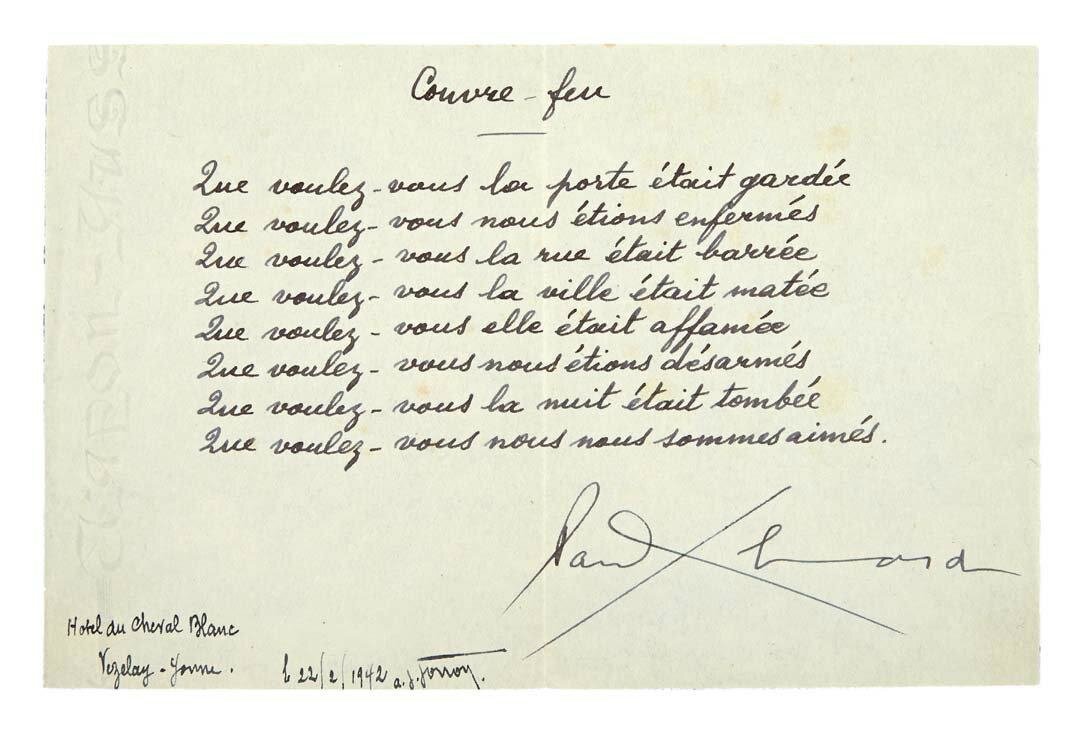 Couvre-feu
Que voulez-vous la porte était gardée
Que voulez-vous nous étions enfermés
Que voulez-vous la rue était barrée
Que voulez-vous la ville était matée
Que voulez-vous elle était affamée
Que voulez-vous nous étions désarmés
Que voulez-vous la nuit était tombée
Que voulez-vous nous nous sommes aimés.
Paul Eluard
Hotel du Cheval Blanc
Vezelay - Yonne.
le 22/2/1942 a. J.